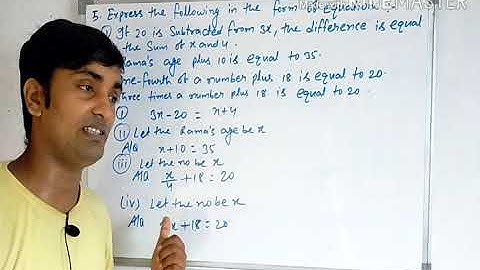 5. Express the following in the form of equation.
MASTER
If 20 is Subtracted from 3x, the difference is equal
the Sum of x and 4.
Rama's age plus 10 is equal to 35.
one-fourth of a number plus 18 is equal to 20.
three times a number plus 18 is equal to 20.
(i) 3x-20 = x+4
(ii) Let the Rama's age be x
A/Q x+10 = 35
(iii) Let the no be x
A/Q x/4 + 18 = 20
(iv) Let the no be x
A/Q x+18 = 20